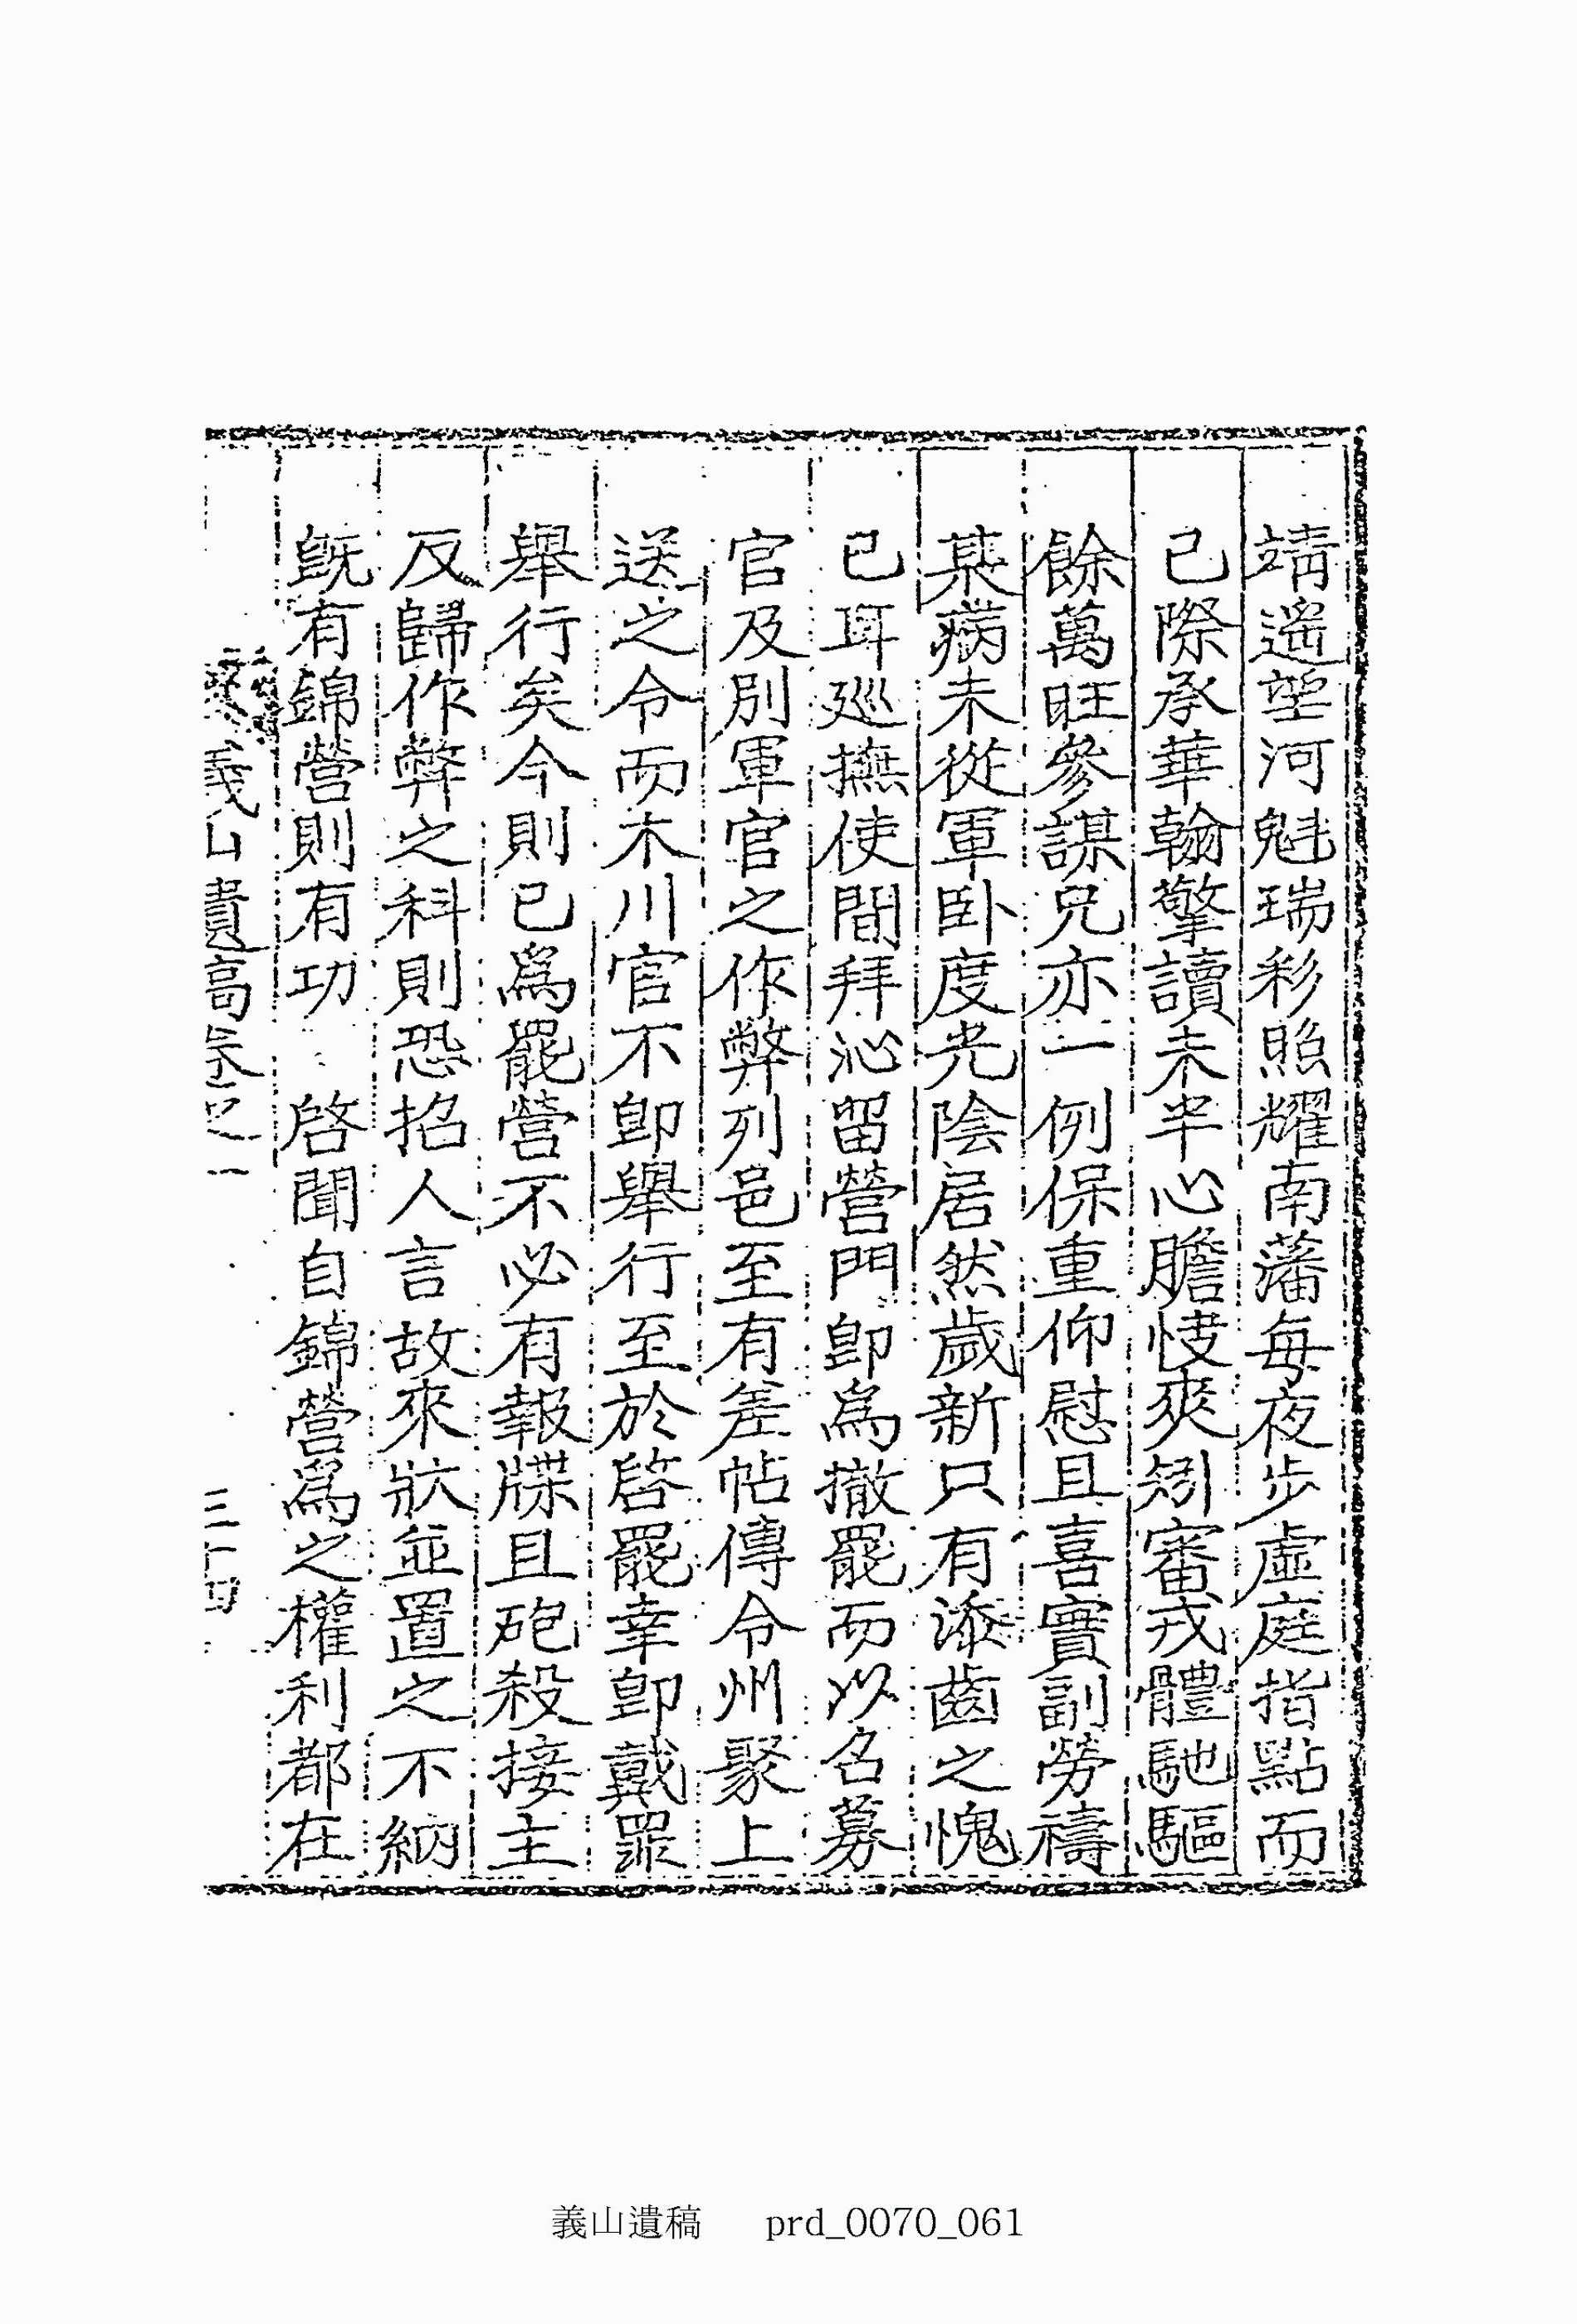 靖遙望河魁瑞彩照耀南藩每夜步虛庭指點而
已際承華翰擎讀未半心膽快爽矧審戎體馳驅
餘萬旺參謀兄亦一例保重仰慰且喜實副勞禱
某病未從軍臥度光陰居然歲新只有添齒之愧
已耳廵撫使間拜沁留營門卽爲撤罷而以名募
官及別軍官之作弊列邑至有差帖傳令州聚上
送之令而木川官不卽擧行至於啓罷幸卽戴罪
擧行矣今則已爲罷營不必有報牒且砲殺接主
反歸作弊之科則恐招人言故來狀並置之不納
旣有錦營則有功 啓聞自錦營爲之權利都在
義山遺稿卷之二 三十四
義山遺稿 prd_0070_061